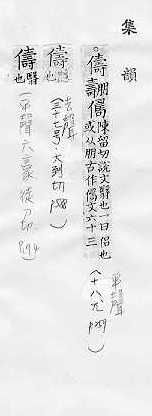 集韻
。儔 𠷎 㒞 陳留切說文翳也一曰侶也
或从朋古作㒞文六十三
平聲
(十八尤 p259)
儔 翳也
去聲
(三十七号·大到切 p588)
儔 翳也
(平聲六豪徒刀切 p194)